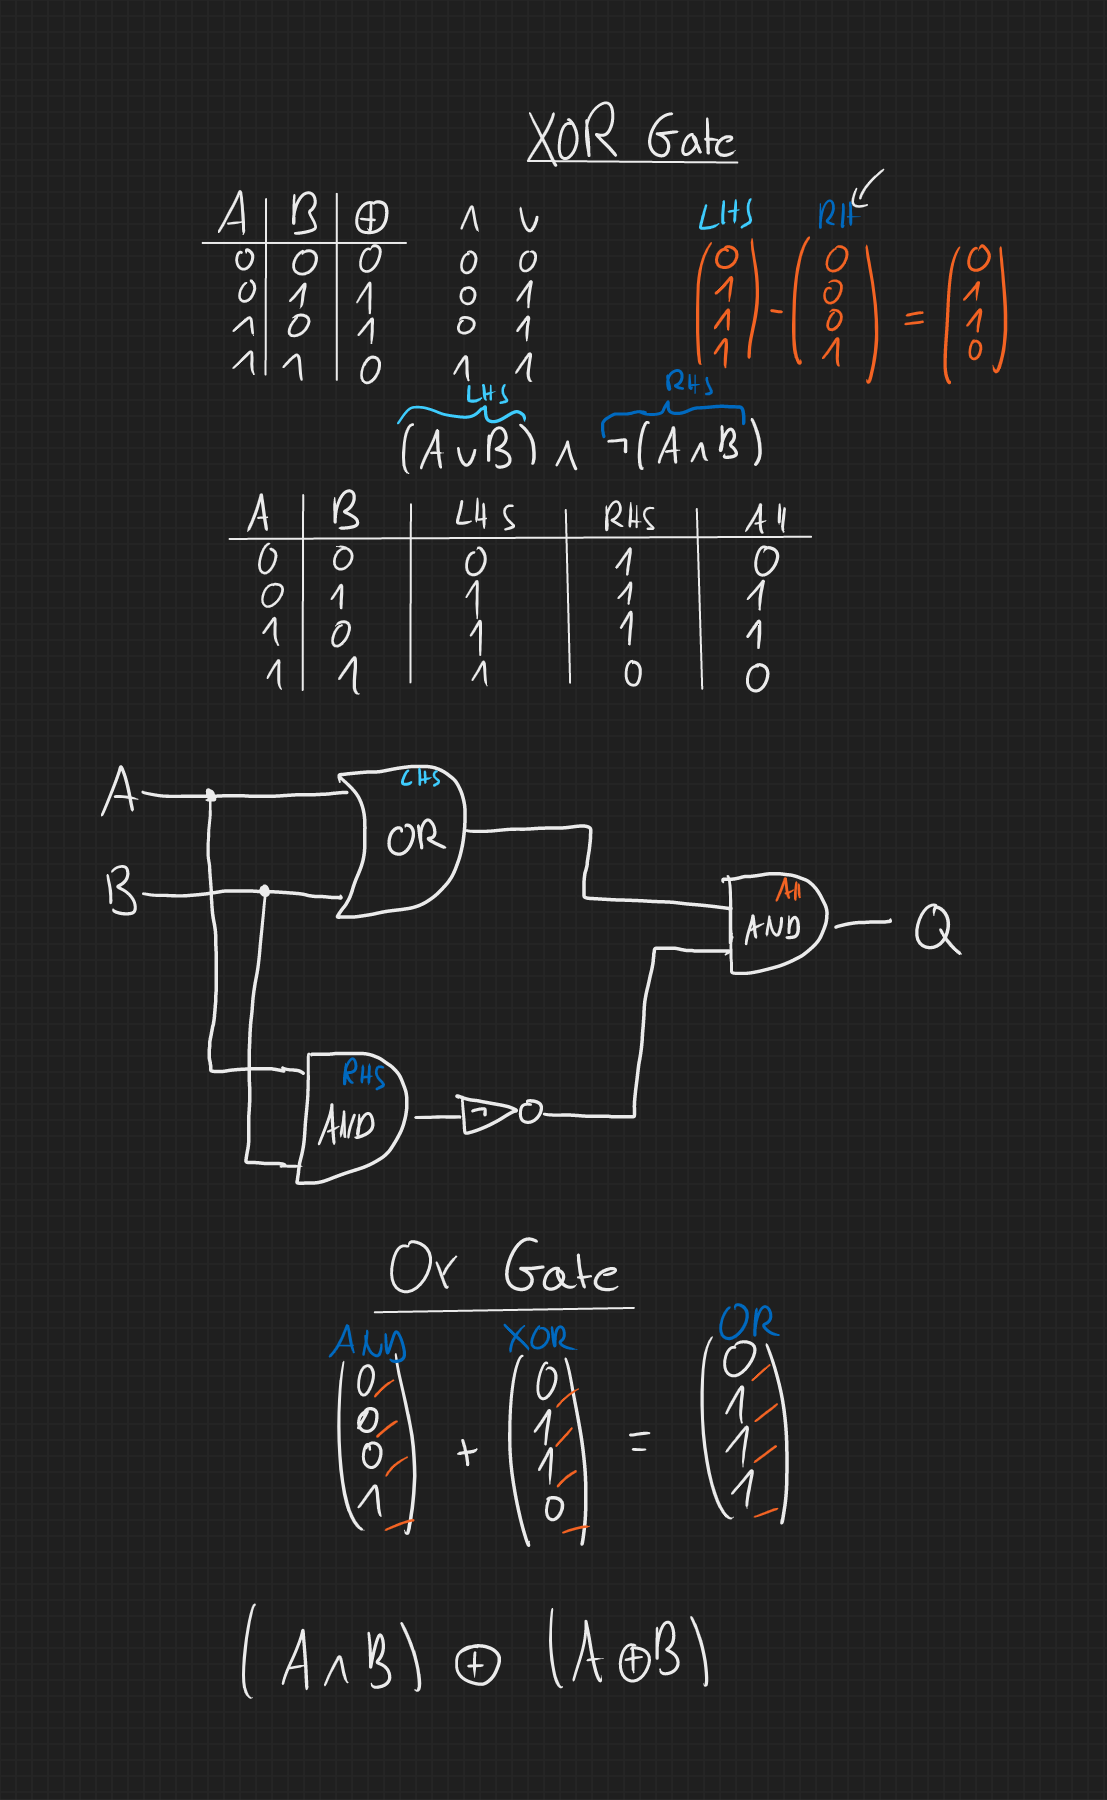 XOR Gate
A B ⊕ ∧ ∨ LHS RH
0 0 0 0 0 (0) (0) (0)
0 1 1 0 1 (1) - (0) = (1)
1 0 1 0 1 (1) (0) (1)
1 1 0 1 1 (1) (1) (0)
LHS RHS
(A ∨ B) ∧ ¬(A ∧ B)
A B LHS RHS All
0 0 0 1 0
0 1 1 1 1
1 0 1 1 1
1 1 1 0 0
A LHS
OR
B All
AND Q
RHS
AND ¬
Or Gate
AND XOR OR
(0) (0) (0)
(0) + (1) = (1)
(0) (1) (1)
(1) (0) (1)
(A ∧ B) ⊕ (A ⊕ B)